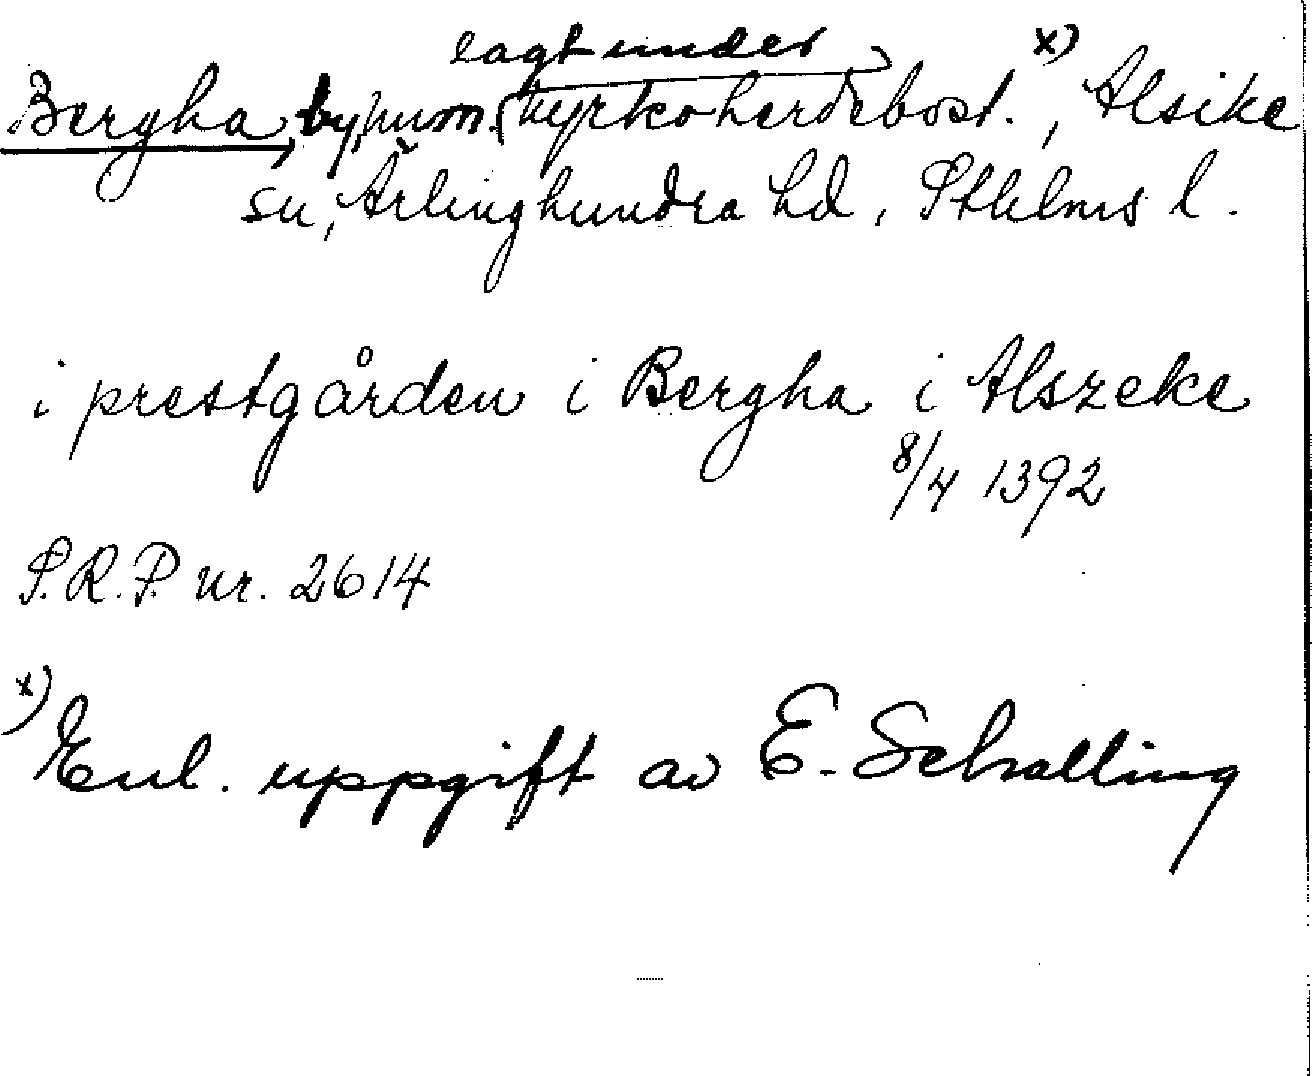 lagt under
Bergha, by, num. kyrkoherdebost. x), Alsike
sn, Ärlinghundra hd, Sthlms l.
i prestgården i Bergha i Alszeke
8/4 1392
S.R.P. nr. 2614
x) Enl. uppgift av E. Schalling